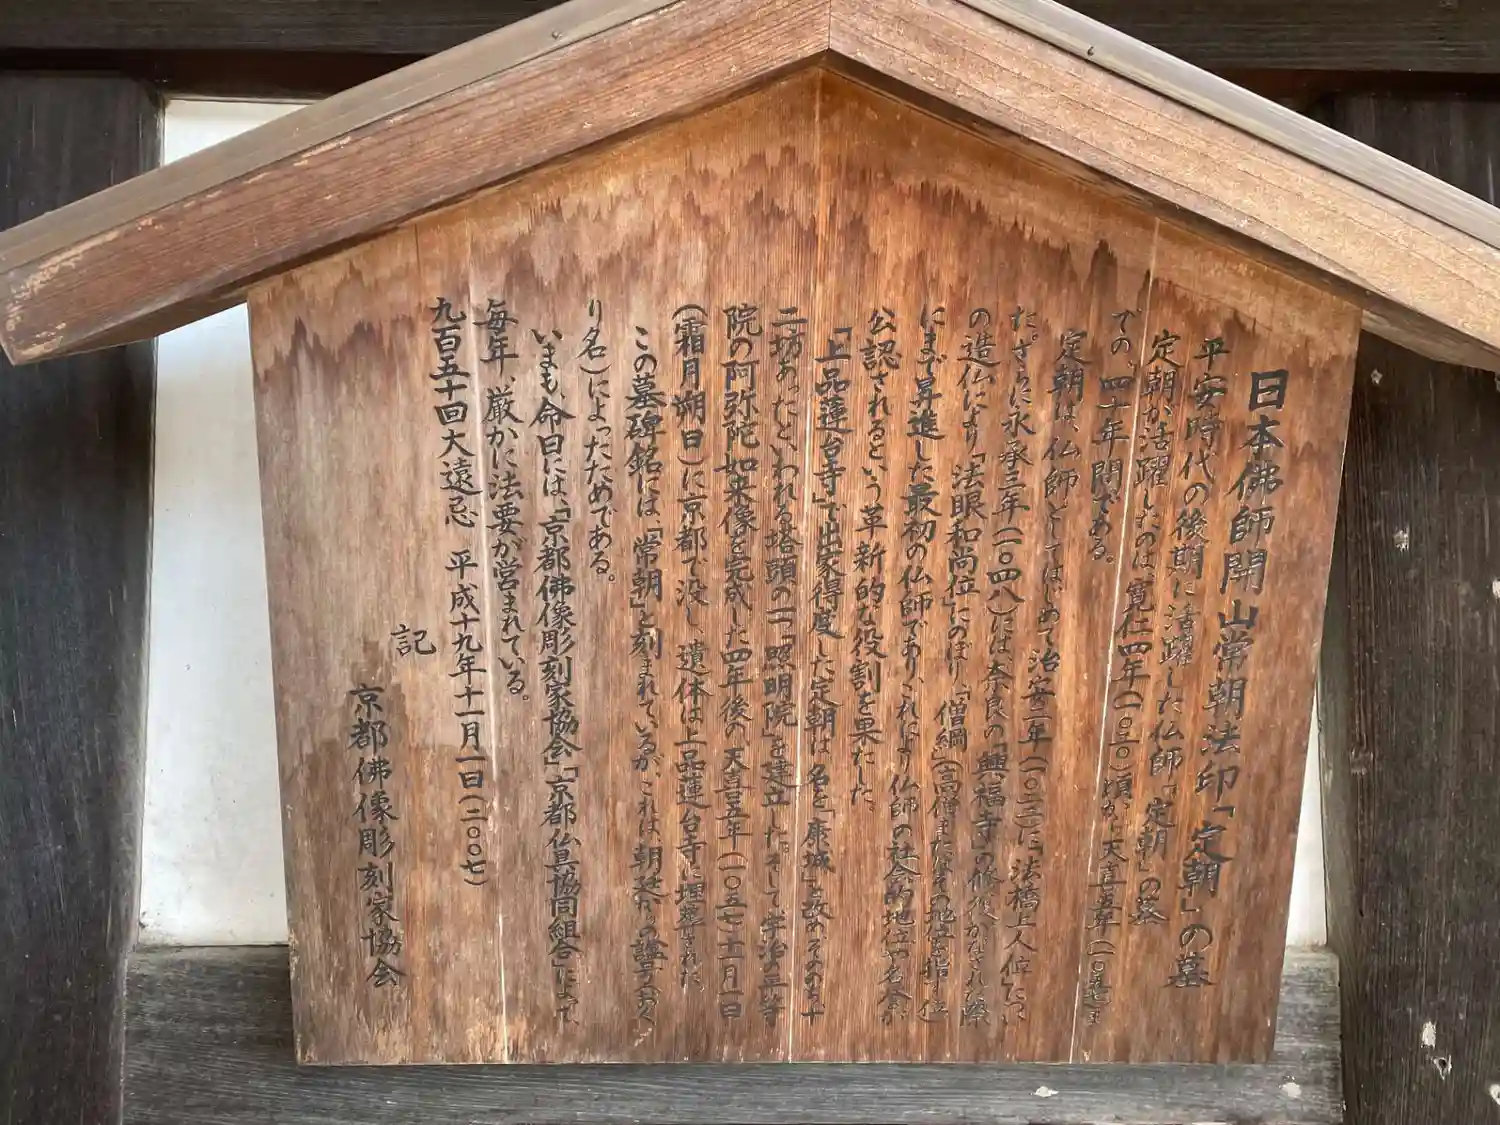 日本佛師開山常朝法印「定朝」の墓
平安時代の後期に活躍した仏師「定朝」の墓
定朝が活躍したのは、寛仁四年(一〇二〇)頃から天喜五年(一〇五七)ま
での、四十年間である。
定朝は、仏師としてはじめて治安二年(一〇二二)に「法橋上人位」につい
た。さらに永承三年(一〇四八)には、奈良の「興福寺」の修復がなされた際
の造仏により「法眼和尚位」にのぼり、「僧綱」(高僧またはその地位を指す位)
にまで昇進した最初の仏師であり、これにより仏師の社会的地位や名誉が
公認されるという革新的な役割を果たした。
「上品蓮台寺」で出家得度した定朝は名を「康城」と改めその寺の十
二坊あったといわれる塔頭の一つ「照明院」を建立した。そして宇治の平等
院の阿弥陀如来像を完成した四年後の、天喜五年(一〇五七)十一月一日
(霜月朔日)に京都で没し、遺体は上品蓮台寺に埋葬された。
この墓碑銘には「常朝」と刻まれているが、これは、朝廷からの諡号(おく
り名)によったためである。
いまも、命日には、「京都佛像彫刻家協会」「京都仏具協同組合」によって、
毎年、厳かに法要が営まれている。
九百五十回大遠忌 平成十九年十一月一日(二〇〇七)
記
京都佛像彫刻家協会